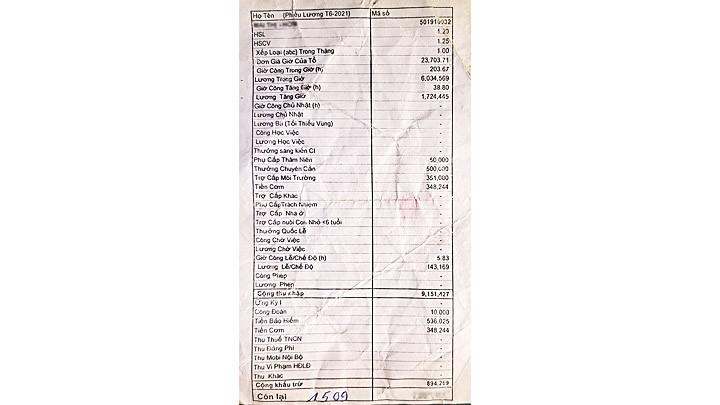 Họ Tên (Phiếu Lương T6-2021) Mã số
501910032
HSL 1.23
HSCV 1.25
Xếp Loại (abc) Trong Tháng 1.00
Đơn Giá Giờ Của Tổ 23,703.71
Giờ Công Trong Giờ (h) 203.67
Lương Trong Giờ 6,034,569
Giờ Công Tăng Giờ (h) 38.80
Lương Tăng Giờ 1,724,445
Giờ Công Chủ Nhật (h) -
Lương Chủ Nhật -
Lương Bù (Tối Thiểu Vùng) -
Công Học Việc -
Lương Học Việc -
Thưởng sáng kiến CI -
Phụ Cấp Thâm Niên 50,000
Thưởng Chuyên Cần 500,000
Trợ Cấp Môi Trường 351,000
Tiền Cơm 348,244
Trợ Cấp Khác -
Phụ CấpTrách Nhiệm -
Trợ Cấp Nhà ở -
Trợ Cấp nuôi Con Nhỏ <6 tuổi -
Thưởng Quốc Lễ -
Công Chờ Việc -
Lương Chờ Việc -
Giờ Công Lễ/Chế Độ (h) 5.83
Lương Lễ/Chế Độ 143,169
Công Phép -
Lương Phép -
Cộng thu nhập 9,151,427
Ứng Kỳ I -
Công Đoàn 10,000
Tiền Bảo Hiểm 536,025
Tiền Cơm 348,244
Thu Thuế TNCN -
Thu Đảng Phí -
Thu Mobi Nội Bộ -
Thu Vi Phạm HĐLĐ -
Thu Khác -
Cộng khấu trừ 894,269
Còn lại 1509